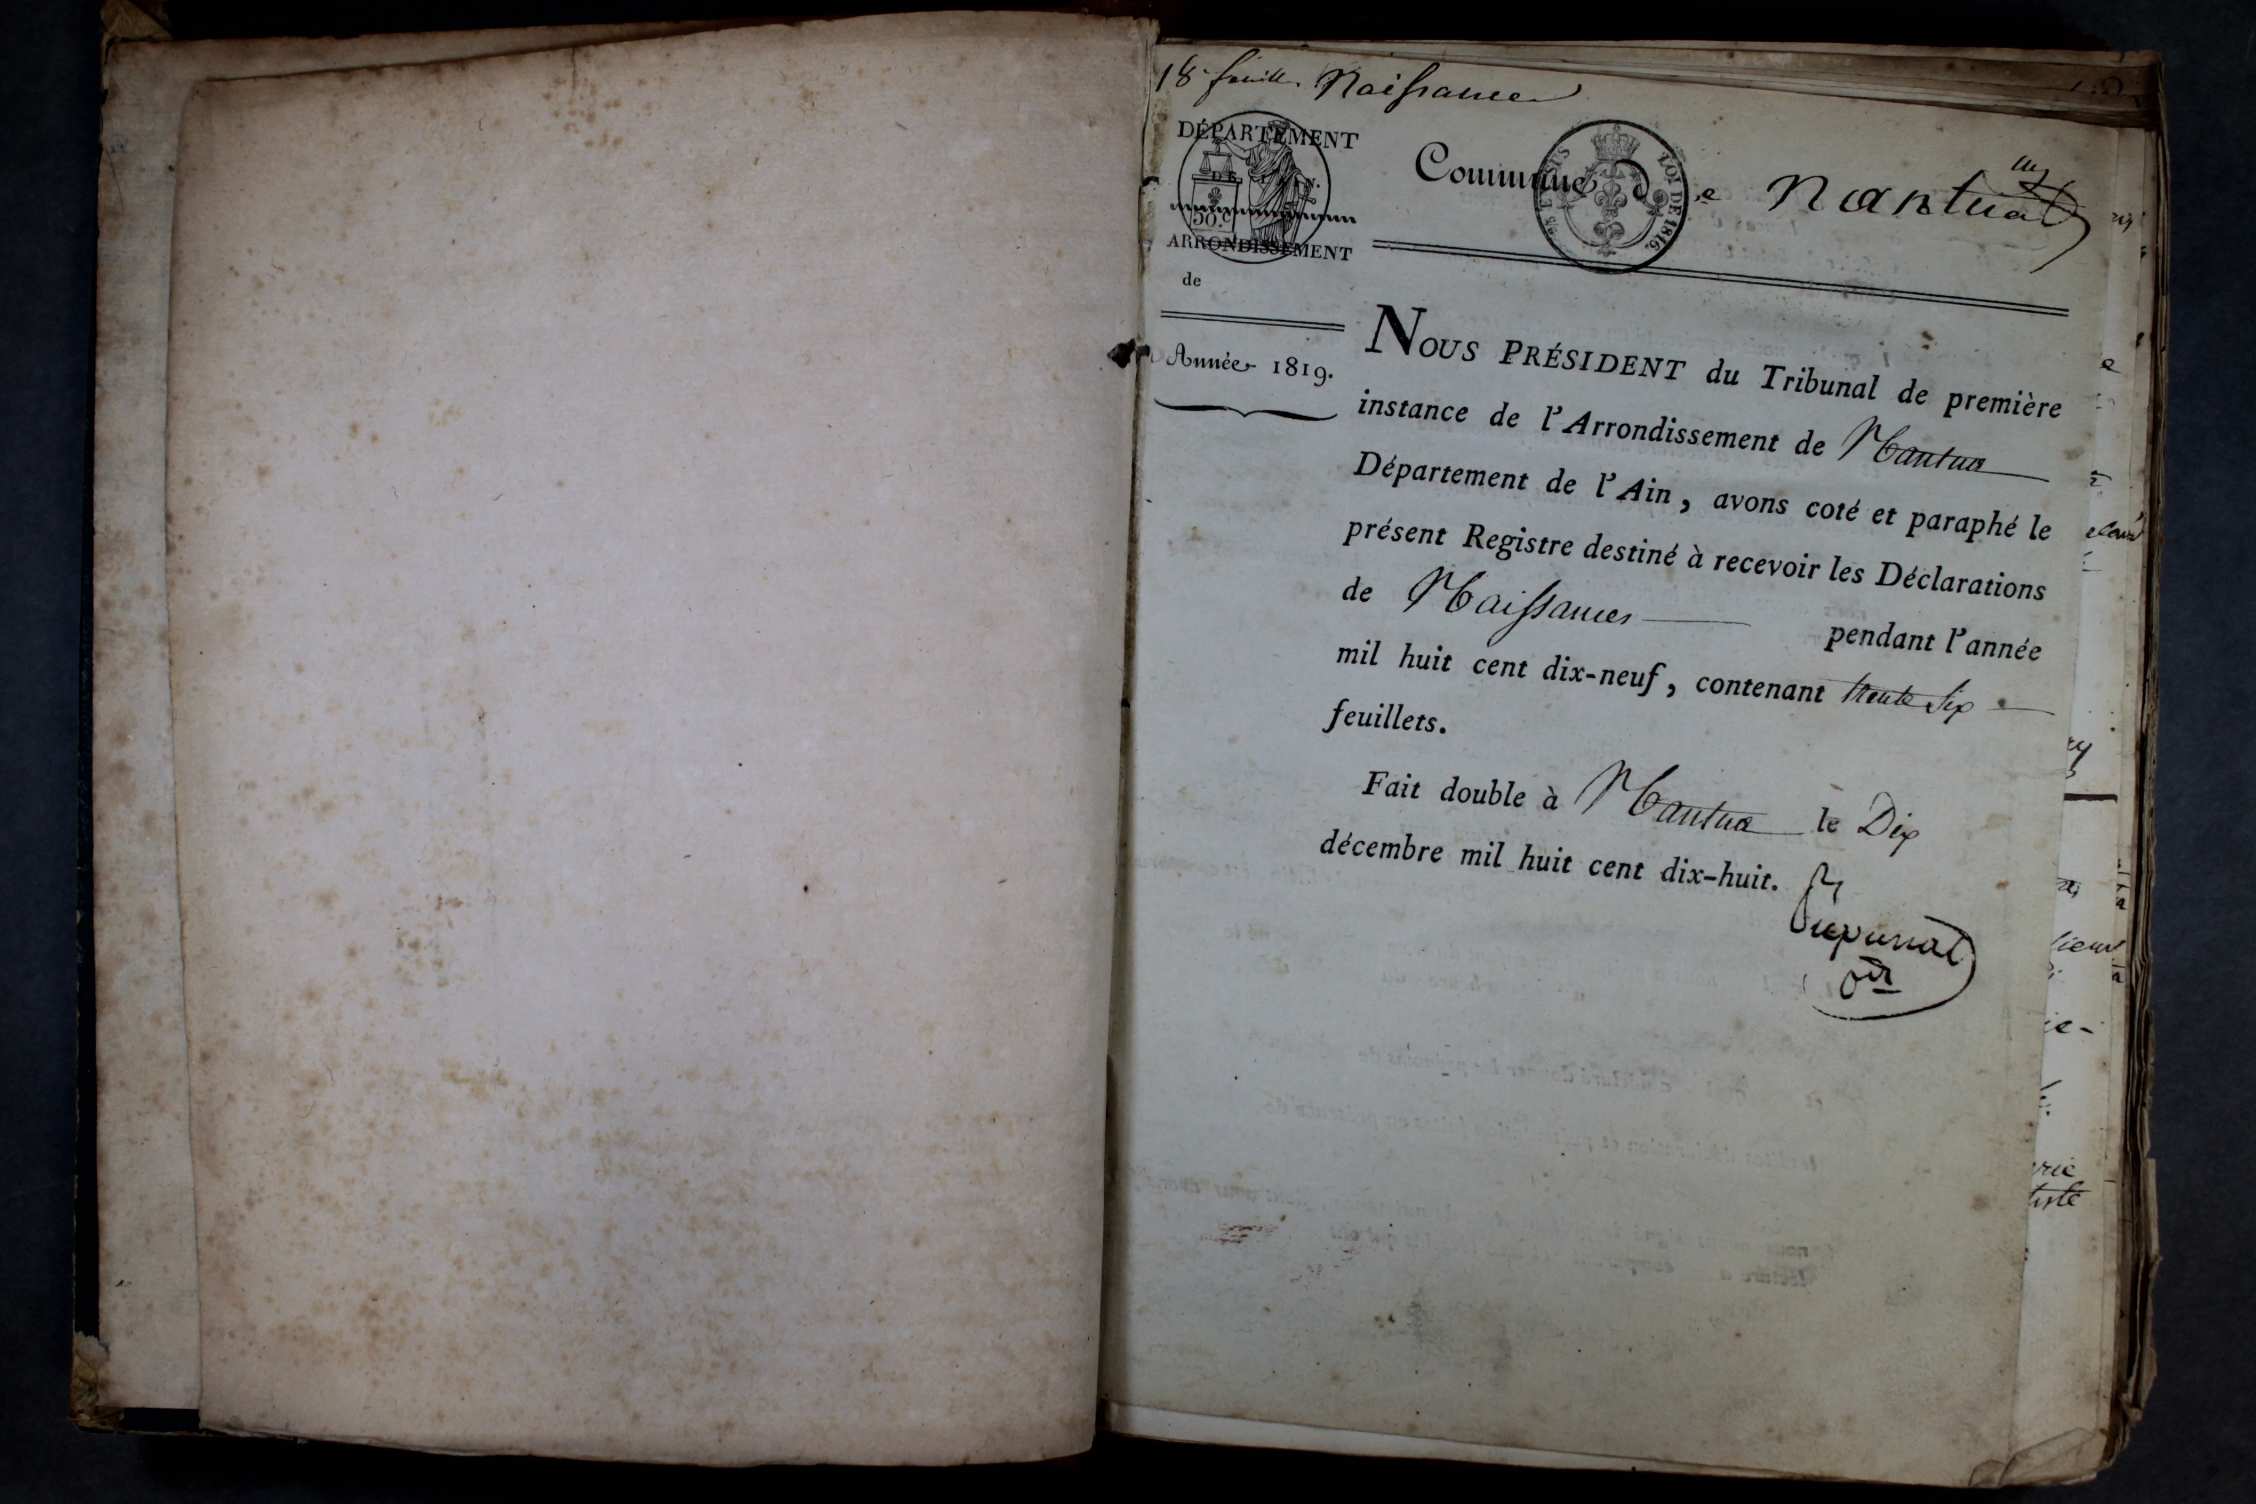 18 feuill. Naissances
DÉPARTEMENT
DE L'AIN.
50.c
ARRONDISSEMENT
de
Année 1819.
Commune de Nantua
25 EN SUS
LOI DE 1816.
NOUS PRÉSIDENT du Tribunal de première
instance de l'Arrondissement de Nantua
Département de l'Ain, avons coté et paraphé le
présent Registre destiné à recevoir les Déclarations
de Naissances pendant l'année
mil huit cent dix-neuf, contenant trente Six
feuillets.
Fait double à Nantua le Dix
décembre mil huit cent dix-huit.